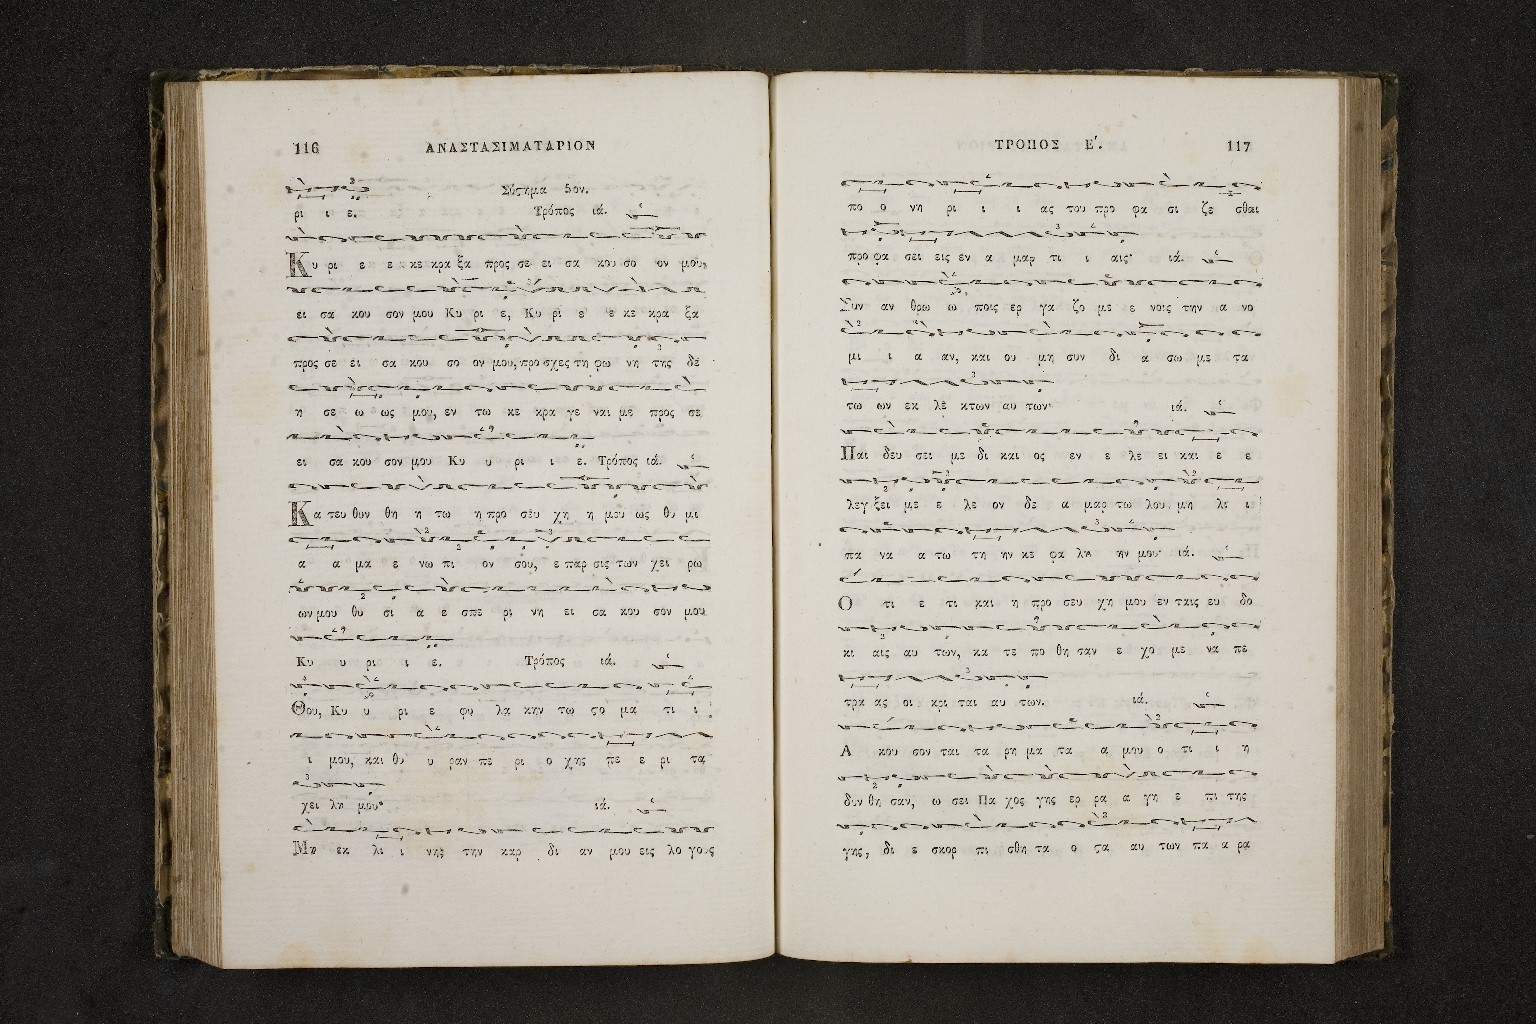 116 ΑΝΑΣΤΑΣΙΜΑΤΑΡΙΟΝ
Σύστημα 5ον.
ρι ι ε. Τρόπος ιά.
Κυ ρι ε ε κε κρα ξα προς σε ει σα κου σο ον μου,
ει σα κου σον μου Κυ ρι ε, Κυ ρι ε ε κε κρα ξα
προς σε ει σα κου σο ον μου, προ σχες τη φω νη της δε
η σε ω ως μου, εν τω κε κρα γε ναι με προς σε
ει σα κου σον μου Κυ υ ρι ι ε. Τρόπος ιά.
Κα τευ θυν θη η τω η προ σευ χη η μου ως θυ μι
α α μα ε νω πι ον σου, ε παρ σις των χει ρω
ων μου θυ σι α ε σπε ρι νη ει σα κου σον μου
Κυ υ ρι ι ε. Τρόπος ιά.
Θου, Κυ υ ρι ε φυ λα κην τω στο μα τι ι
ι μου, και θυ υ ραν πε ρι ο χης πε ε ρι τα
χει λη μου· ιά.
Μη εκ λι ι νης την καρ δι αν μου εις λο γους
ΤΡΟΠΟΣ Ε΄. 117
πο ο νη ρι ι ι ας του προ φα σι ζε σθαι
προ φα σει εις εν α μαρ τι ι αις· ιά.
Συν αν θρω ω ποις ερ γα ζο με ε νοις την α νο
μι ι α αν, και ου μη συν δι α σω με τα
τω ων εκ λε κτων αυ των· ιά.
Παι δευ σει με δι και ος εν ε λε ει και ε ε
λεγ ξει με ε λε ον δε α μαρ τω λου μη λι ι
πα να α τω τη ην κε φα λη ην μου· ιά.
Ο τι ε τι και η προ σευ χη μου εν ταις ευ δο
κι αις αυ των, κα τε πο θη σαν ε χο με να πε
τρα ας οι κρι ται αυ των. ιά.
Α κου σον ται τα ρη μα τα α μου ο τι ι η
δυν θη σαν, ω σει πα χος γης ερ ρα α γη ε πι της
γης, δι ε σκορ πι σθη τα ο στα αυ των πα α ρα